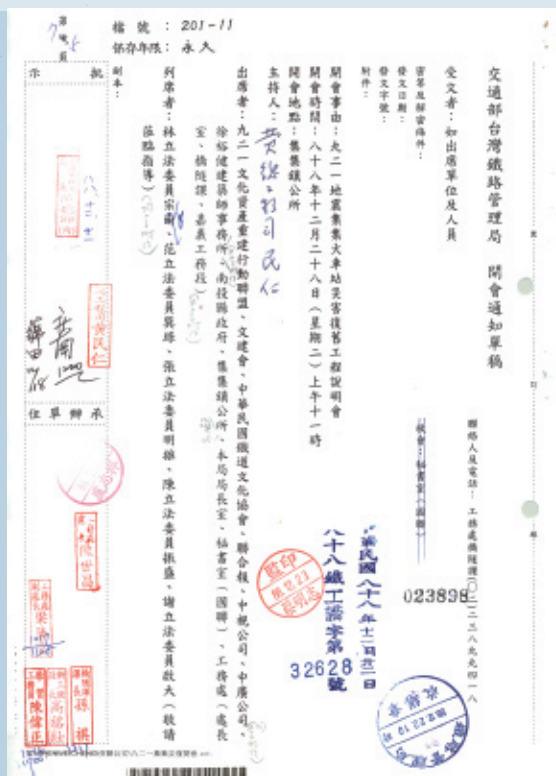 檔號：201-11
保存年限：永久
交通部台灣鐵路管理局 開會通知單稿
聯絡人及電話：工務處橋隧課(〇二)二三八九九四一八
受文者：如出席單位及人員
密等及解密條件：
發文日期：
發文字號：
附件：
中華民國八十八年十二月廿二日
八十八鐵工橋字第32628號
023898
開會事由：九二一地震集集火車站災害復舊工程說明會
開會時間：八十八年十二月二十八日（星期二）上午十一時
開會地點：集集鎮公所
主持人：黃總工程司民仁
出席者：九二一文化資產重建行動聯盟、文建會、中華民國鐵道文化協會、聯合報、中視公司、中廣公司、
徐裕健建築師事務所、南投縣政府、集集鎮公所、本局局長室、秘書室（國聯）、工務處（處長
室、橋隧課、嘉義工務段）
列席者：林立法委員宗男、范立法委員巽綠、張立法委員明雄、陳立法委員振盛、謝立法委員啟大（敬請
蒞臨指導）
副本：
批示
承辦單位
監印
黃民仁
陳世昌
孫祺
陳偉正